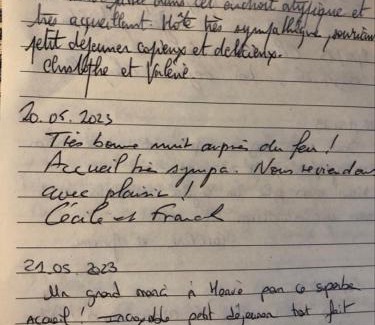 dans cet endroit atypique et
très accueillant. Hôte très sympathique, souriant
petit déjeuner copieux et délicieux.
Christophe et Valérie
20.05.2023
Très bonne nuit auprès du feu !
Accueil très sympa. Nous reviendrons
avec plaisir !
Cécile et Franck
21.05.2023
Un grand merci à Hervé pour ce superbe
Accueil ! Incroyable petit déjeuner tout fait